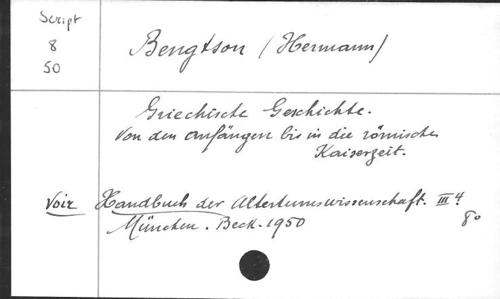 Script
8
50
Bengtson (Hermann)
Griechische Geschichte.
Von den Anfängen bis in die römische
Kaiserzeit.
Voir Handbuch der Altertumswissenschaft. III 4
München. Beck. 1950
8°